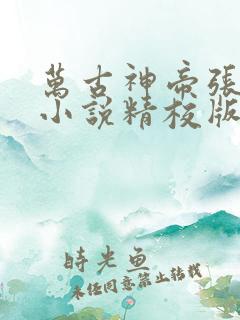 萬古神帝張
小說精校版
時光魚
未經同意禁止轉載